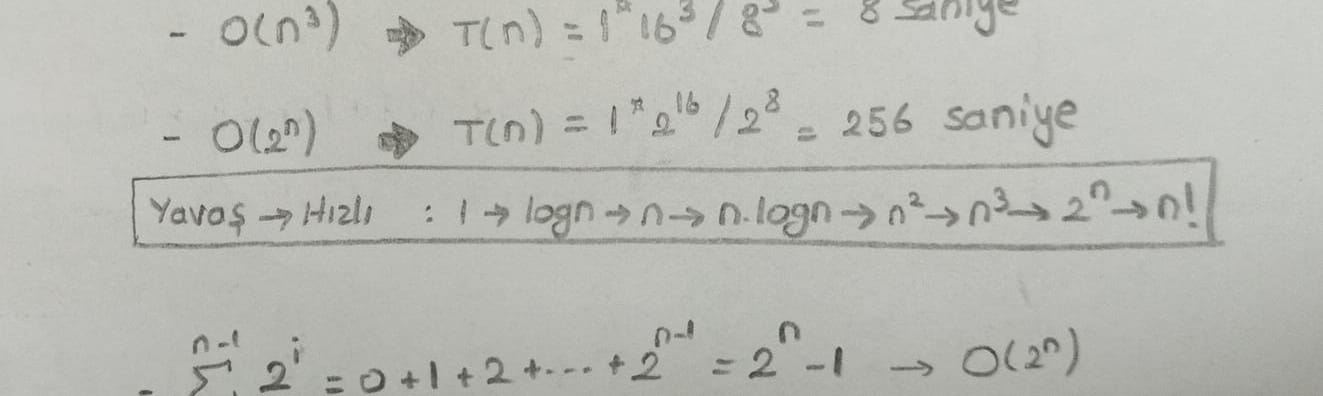 - O(n³) ⇒ T(n) = 1*16³/8³ = 8 saniye
- O(2ⁿ) ⇒ T(n) = 1*2¹⁶/2⁸ = 256 saniye
Yavaş → Hızlı : 1 → logn → n → n.logn → n² → n³ → 2ⁿ → n!
- n-1 ∑ 2ⁱ = 0+1+2+...+2ⁿ⁻¹ = 2ⁿ-1 → O(2ⁿ)